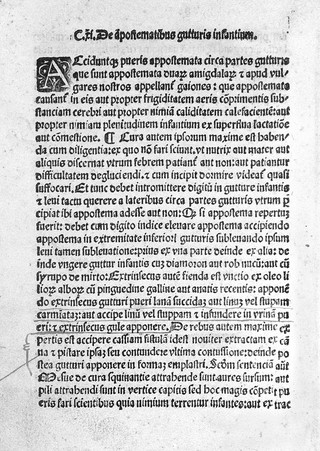 C.II. De apostematibus gutturis infantium.
Accidunt qꝫ pueris appostemata circa partes gutturis
que sunt appostemata duaꝝ amigdalaꝝ ⁊ apud vul-
gares nostros appellant᷑ gaiones: que appostemata
causant᷑ in eis aut propter frigiditatem aeris cōprimentis sub-
stanciam cerebri aut propter nimiā caliditatem calefacientē: aut
propter nimiam plenitudinem infantium ex superflua lactatiōe
aut comestione. ¶ Cura autem ipsorum maxime est haben-
da cum diligentia: ex quo nō fari sciunt. vt nutrix aut mater aut
aliquis discernat vtrum febrem patiant᷑ aut non: aut patiantur
difficultatem degluciendi. ⁊ cum incipit dormire videat᷑ quasi
suffocari. Et tunc debet intromittere digitū in gutture infantis
⁊ leui tactu querere a lateribus circa partes gutturis vtrum
cipiat ibi appostema adesse aut non: Qꝫ si appostema repertuꝫ
fuerit: debet cum digito indice eleuare appostema accipiendo
appostema in extremitate inferiori gutturis subleuando ipsum
leui tamen subleuatione: prius ex vna parte deinde ex alia: de
inde vngere guttur infantis cuꝫ diamoron aut rob nucū: aut cū
syrupo de mirto: Extrinsecus autē fienda est vnctio ex oleo li
lioꝝ alboꝝ cū pinguedine galline aut anatis recentis: apponē
do extrinsecus gutturi pueri lanā succidaꝫ aut linuꝫ vel stupam
carminataꝫ: aut accipe linū vel stuppam ⁊ infundere in vrina pu
eri: ⁊ extrinsecus gule apponere. De rebus autem maxime ex
pertis est accipere cassiam fistulā idest nouiter extractam ex cā
na ⁊ pistare ipsaꝫ seu contundere vltima contusione: deinde po
stea gutturi apponere in formaꝫ emplastri. Scd̓m sentenciā aūt
Mesue de cura squinantie attrahende sunt aures sursum: aut
pili attrahendi sunt in vertice capitis sed hoc magis cōpetit pu
eris fari scientibus quia nimium terrentur infantes: aut ex trac